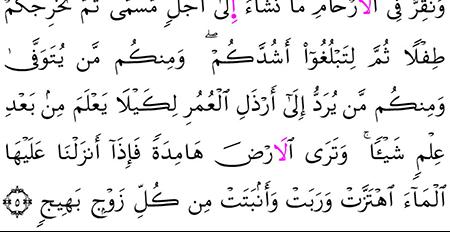 وَنُقِرُّ فِى اِ۬لَارْحَامِ مَا نَشَآءُ اِ۪لَىٰٓ أَجَلٖ مُّسَمّٗى ثُمَّ نُخْرِجُكُمْ
طِفْلٗا ثُمَّ لِتَبْلُغُوٓاْ أَشُدَّكُمْۖ وَمِنكُم مَّن يُتَوَفَّىٰ
وَمِنكُم مَّن يُرَدُّ إِلَىٰٓ أَرْذَلِ اِ۬لْعُمُرِ لِكَيْلَا يَعْلَمَ مِنۢ بَعْدِ
عِلْمٖ شَيْـٔاٗۚ وَتَرَى اَ۬لَارْضَ هَامِدَةٗ فَإِذَآ أَنزَلْنَا عَلَيْهَا
اَ۬لْمَآءَ اَ۪هْتَزَّتْ وَرَبَتْ وَأَنۢبَتَتْ مِن كُلِّ زَوْجِۢ بَهِيجٖۖ ٥